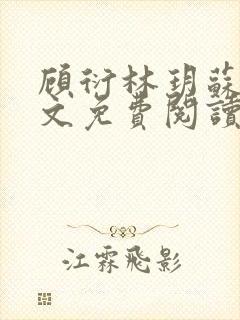 顾衍林玥蘇
文免費閱讀
江霖飛影